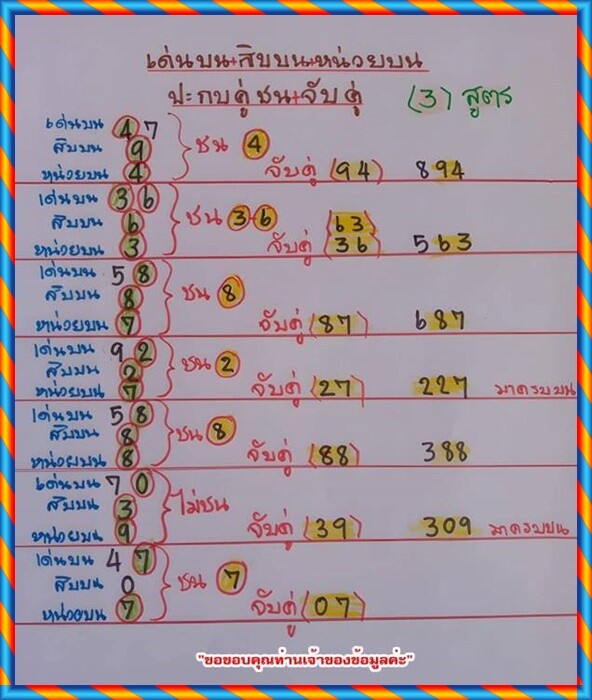 เด่นบน+สิบบน+หน่วยบน
ประกบคู่ชน+จับคู่ (3) สูตร
เด่นบน 4 7
สิบบน 9 ชน 4
หน่วยบน 4 จับคู่ (94) 894
เด่นบน 3 6
สิบบน 6 ชน 3-6 (63)
หน่วยบน 3 จับคู่ (36) 563
เด่นบน 5 8
สิบบน 8 ชน 8
หน่วยบน 7 จับคู่ (87) 687
เด่นบน 9 2
สิบบน 2 ชน 2
หน่วยบน 7 จับคู่ (27) 227 มาครบบน
เด่นบน 5 8
สิบบน 8 ชน 8
หน่วยบน 8 จับคู่ (88) 388
เด่นบน 7 0
สิบบน 3 ไม่ชน
หน่วยบน 9 จับคู่ (39) 309 มาครบบน
เด่นบน 4 7
สิบบน 0 ชน 7
หน่วยบน 7 จับคู่ (07)
"ขอขอบคุณท่านเจ้าของข้อมูลค่ะ"